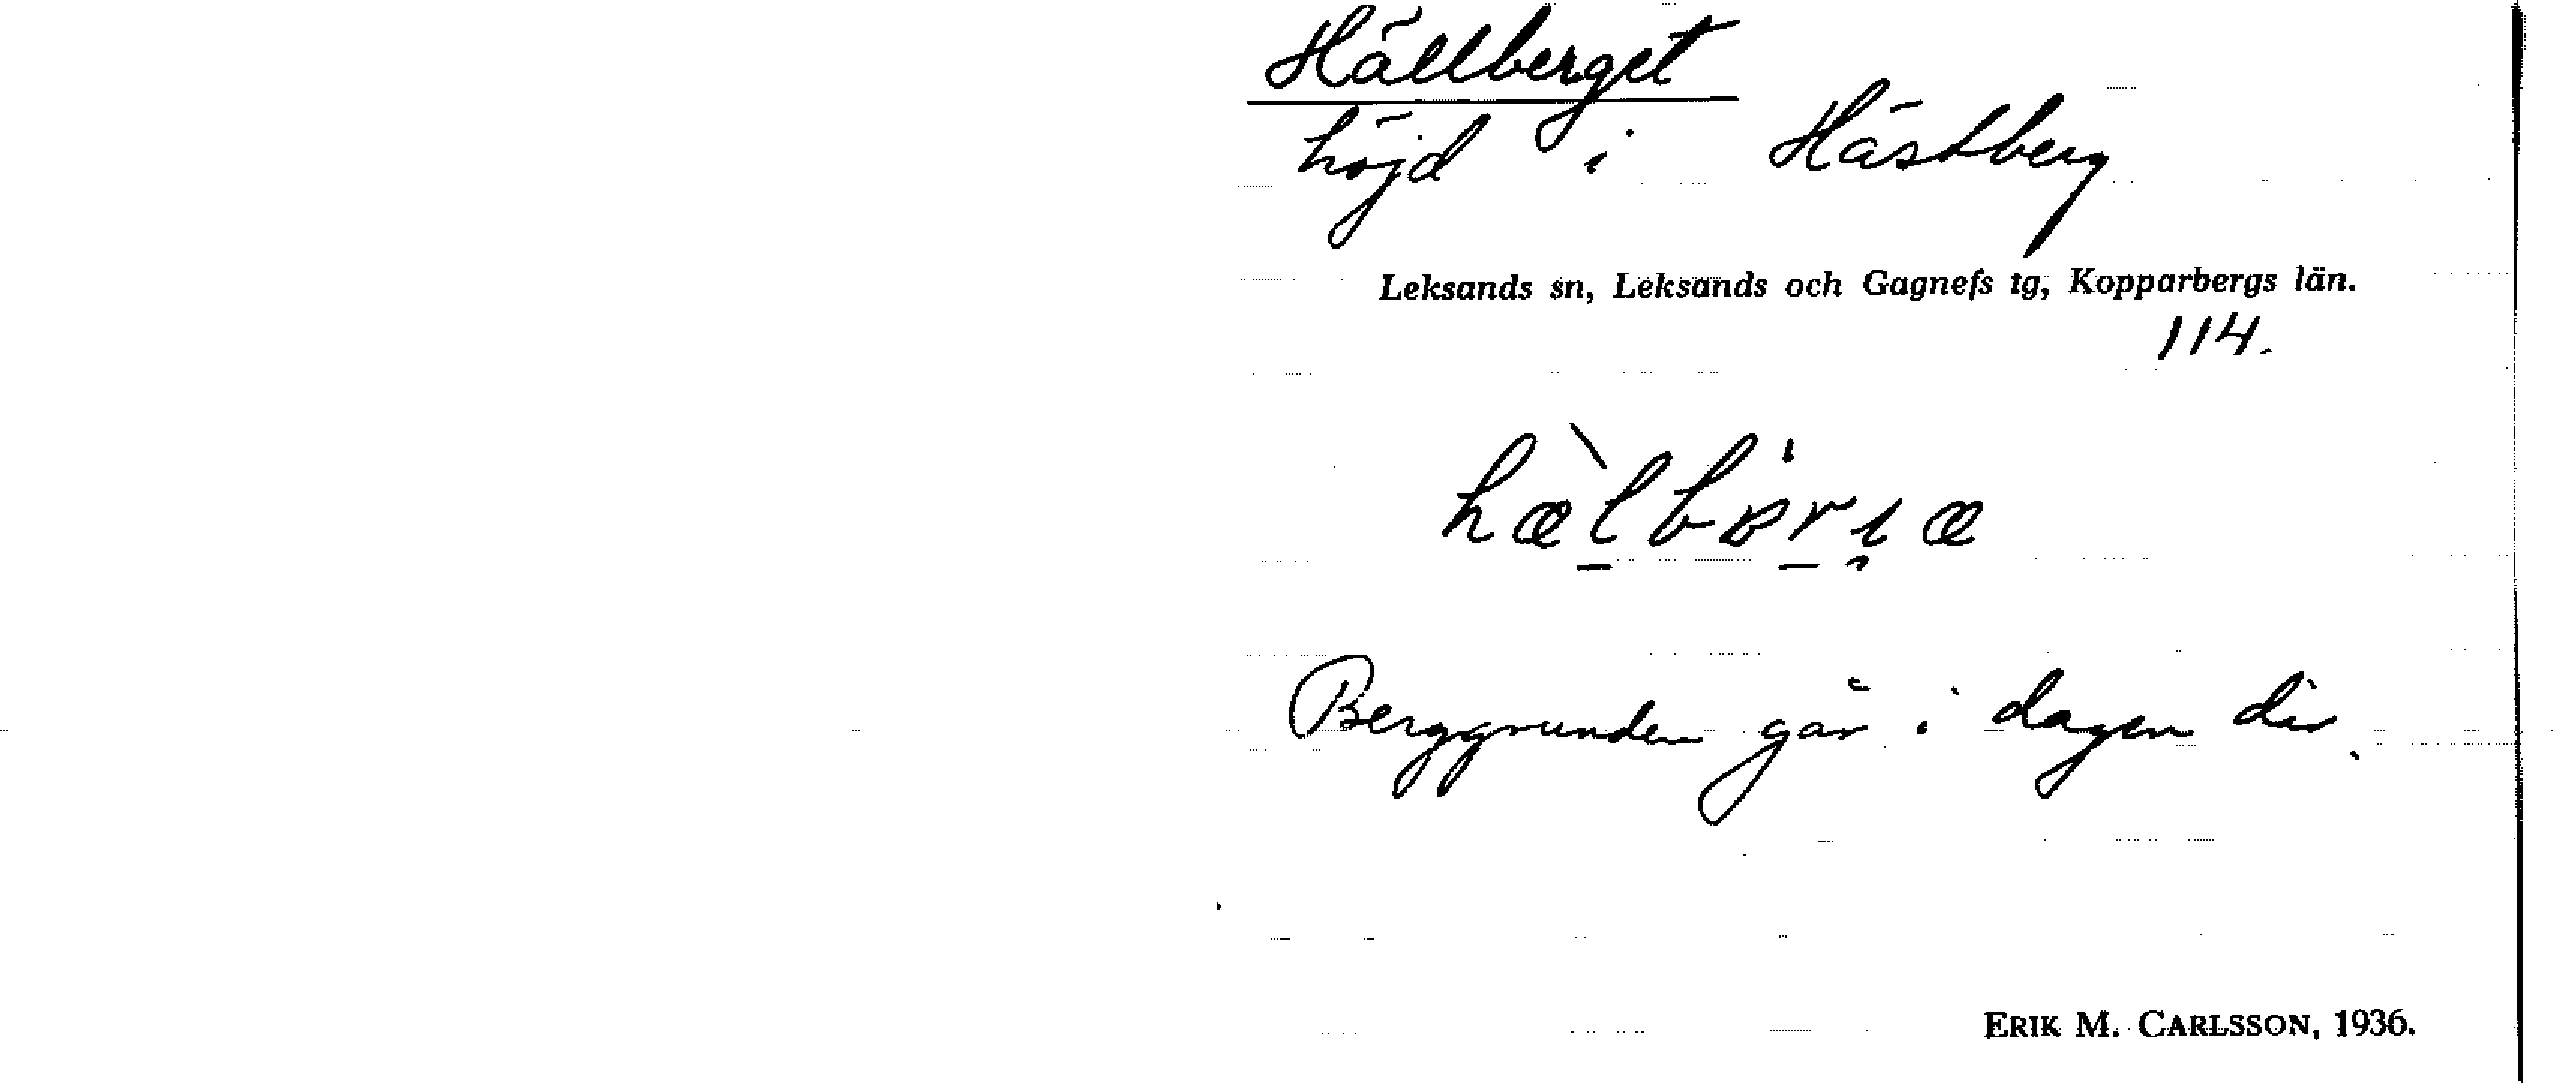 Hällberget
höjd i Hästberg
Leksands sn, Leksands och Gagnefs tg, Kopparbergs län.
114.
Berggrunden går i dagen där.
ERIK M. CARLSSON, 1936.